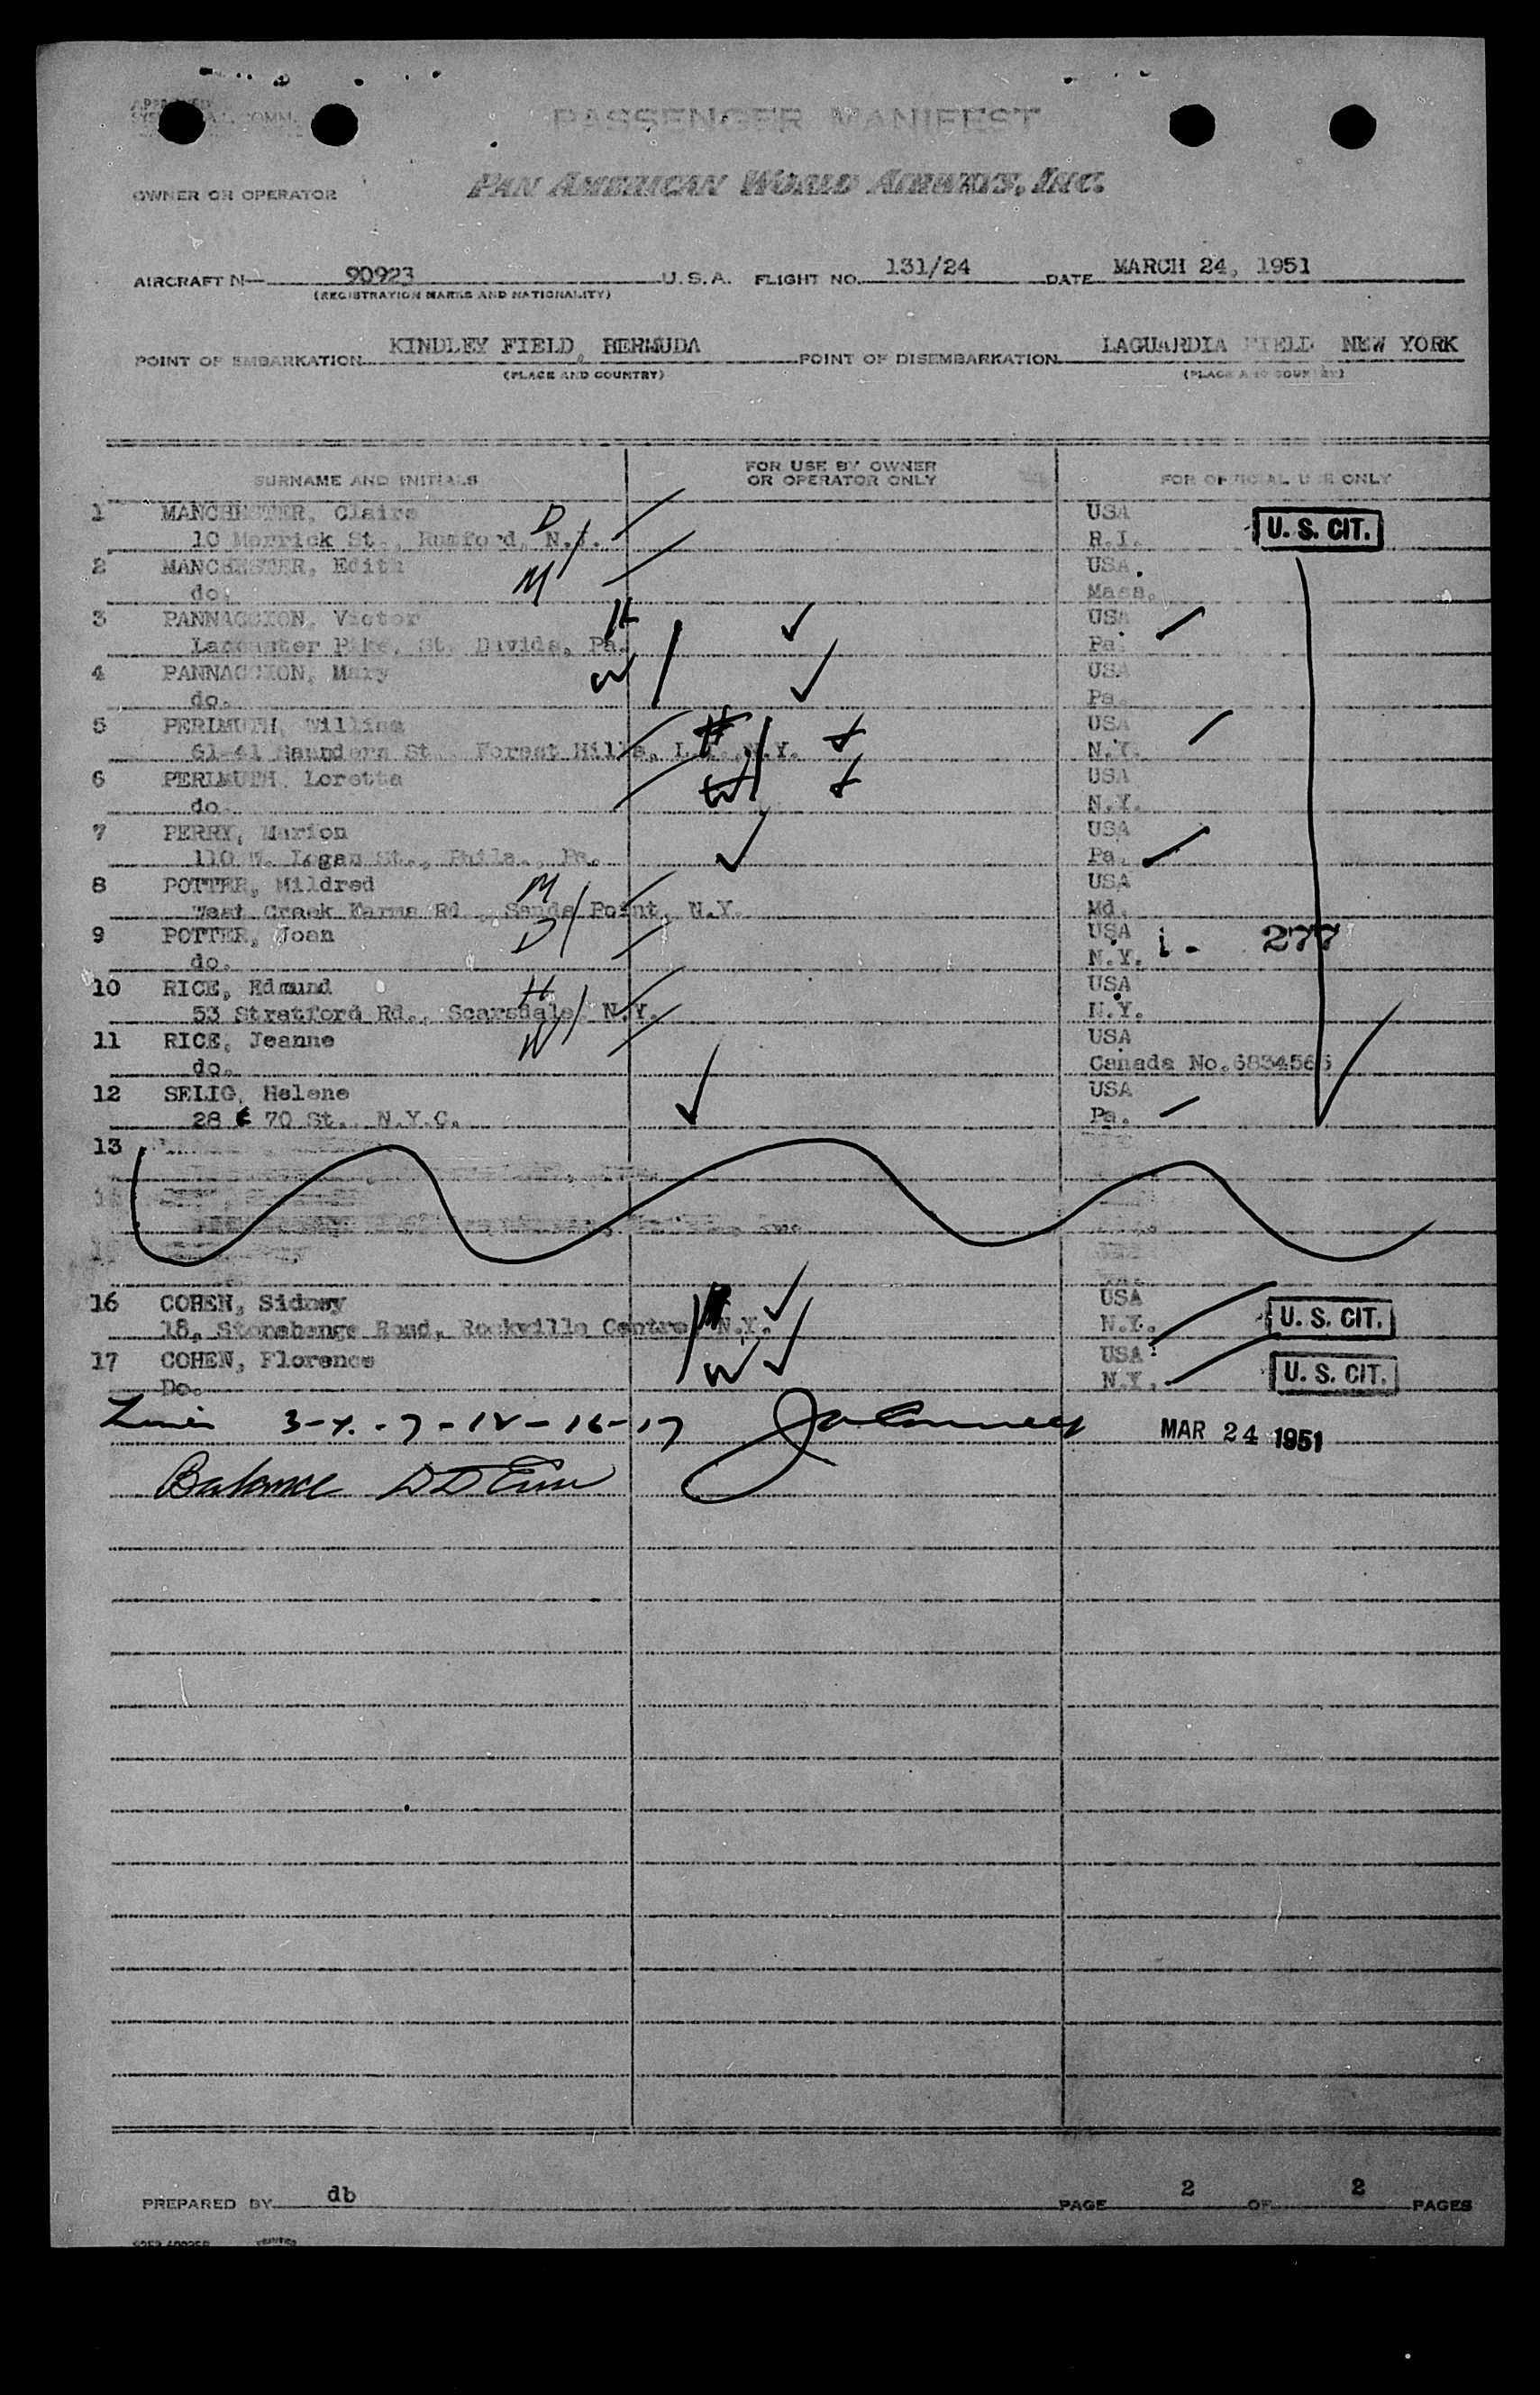 PASSENGER MANIFEST
OWNER OR OPERATOR PAN AMERICAN WORLD AIRWAYS, INC.
AIRCRAFT N— 90923 U.S.A. FLIGHT NO. 131/24 DATE MARCH 24, 1951
(REGISTRATION MARKS AND NATIONALITY)
POINT OF EMBARKATION KINDLEY FIELD, BERMUDA POINT OF DISEMBARKATION LAGUARDIA FIELD NEW YORK
(PLACE AND COUNTRY) (PLACE AND COUNTRY)
SURNAME AND INITIALS FOR USE BY OWNER OR OPERATOR ONLY FOR OFFICIAL USE ONLY
1 MANCHESTER, Claire D USA U. S. CIT.
10 Merrick St., Rumford, R.I.
2 MANCHESTER, Edith M USA
do. Mass.
3 PANNACCION, Victor H USA
Lancaster Pike, St. Davids, Pa. Pa.
4 PANNACCION, Mary W USA
do. Pa.
5 PERLMUTH, William H USA
61-41 Saunders St., Forest Hills, L.I., N.Y. N.Y.
6 PERLMUTH, Loretta W USA
do. N.Y.
7 PERRY, Marion USA
110 W. Logan St., Phila., Pa. Pa.
8 POTTER, Mildred M USA
West Creek Farms Rd., Sands Point, N.Y. Md.
9 POTTER, Joan D USA 277
do. N.Y.
10 RICE, Edmund H USA
53 Stratford Rd., Scarsdale, N.Y. N.Y.
11 RICE, Jeanne W USA
do. Canada No.6834566
12 SELIG, Helene USA
28 E 70 St., N.Y.C. Pa.
13
16 COHEN, Sidney USA U. S. CIT.
18, Stonehenge Road, Rockville Centre, N.Y. N.Y.
17 COHEN, Florence W USA U. S. CIT.
Do. N.Y.
3-4-7-12-16-17 MAR 24 1951
Balance
PREPARED BY db PAGE 2 OF 2 PAGES